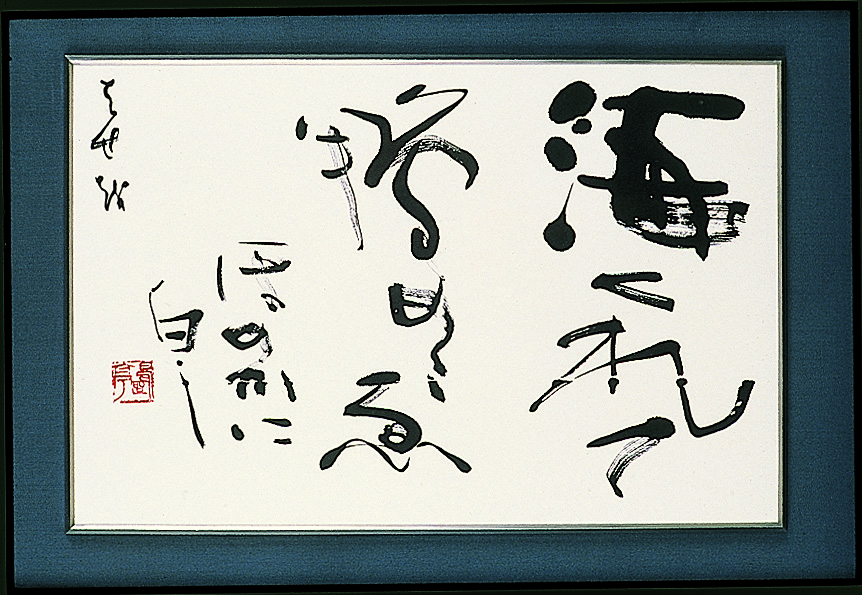 海くれて
鴨のこゑ
ほのかに
白し
はせを